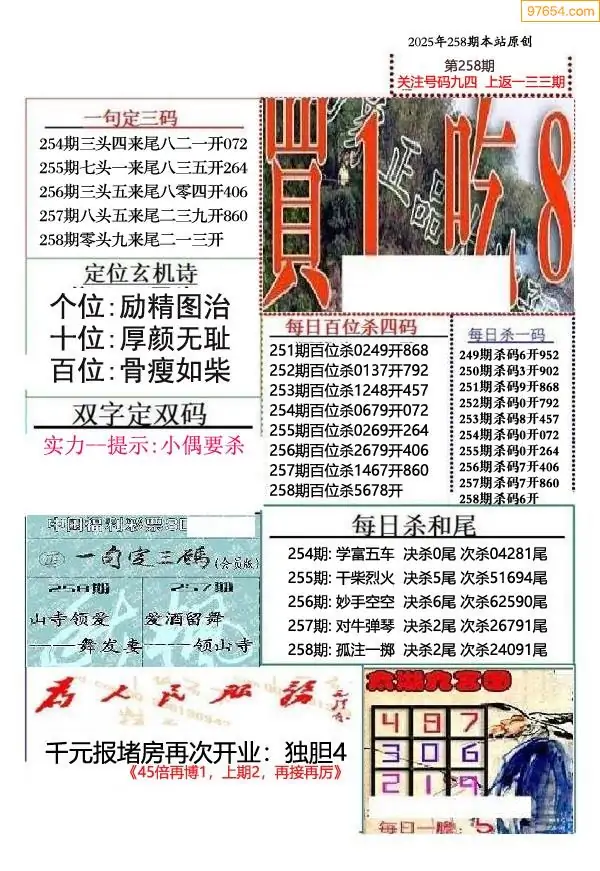 97654.com
2025年258期本站原创
第258期
关注号码九四 上返一三三期
一句定三码
254期三头四来尾八二一开072
255期七头一来尾八三五开264
256期三头五来尾八零四开406
257期八头五来尾二三九开860
258期零头九来尾二一三开
買1吃8
正品
定位玄机诗
个位:励精图治
十位:厚颜无耻
百位:骨瘦如柴
双字定双码
实力一提示:小偶要杀
每日百位杀四码
251期百位杀0249开868
252期百位杀0137开792
253期百位杀1248开457
254期百位杀0679开072
255期百位杀0269开264
256期百位杀2679开406
257期百位杀1467开860
258期百位杀5678开
每日杀一码
249期杀码6开952
250期杀码3开902
251期杀码9开868
252期杀码0开792
253期杀码8开457
254期杀码0开072
255期杀码0开264
256期杀码7开406
257期杀码7开860
258期杀码6开
中国福利彩票3D
一句定三碼(会员版)
258期 257期
山寺领爱 爱酒留舞
——舞发妻 ——领山寺
每日杀和尾
254期: 学富五车 决杀0尾 次杀04281尾
255期: 干柴烈火 决杀5尾 次杀51694尾
256期: 妙手空空 决杀6尾 次杀62590尾
257期: 对牛弹琴 决杀2尾 次杀26791尾
258期: 孤注一掷 决杀2尾 次杀24091尾
为人民服务
千元报堵房再次开业：独胆4
《45倍再博1，上期2，再接再厉》
太湖九宫图
4 9 7
3 0 6
2 1 9
每日一胆: 5